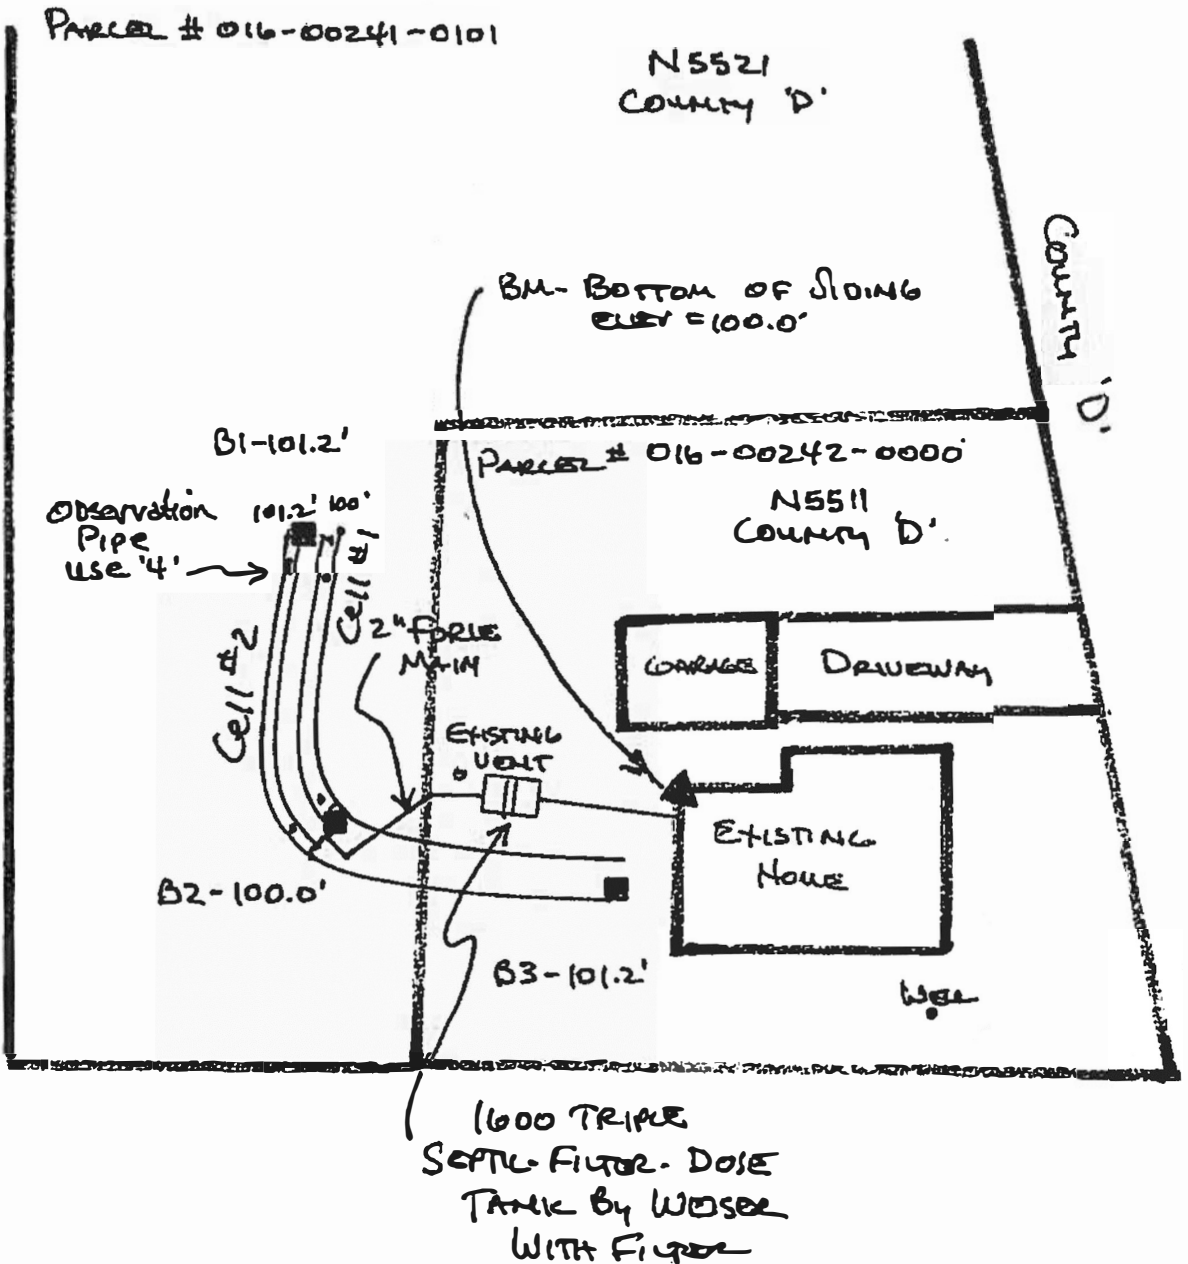 PARCEL # 016-00241-0101
N5521
COUNTY 'D'
COUNTY 'D'
BM- BOTTOM OF SIDING
ELEV = 100.0'
B1-101.2'
PARCEL # 016-00242-0000
N5511
COUNTY 'D'
Observation
Pipe
use '4'
101.2' 100'
Cell #1
Cell #2
2" FORCE
MAIN
GARAGE
DRIVEWAY
EXISTING
VENT
EXISTING
HOME
B2-100.0'
B3-101.2'
WELL
1600 TRIPLE
SEPTIC-FILTER-DOSE
TANK By WEISER
WITH FILTER